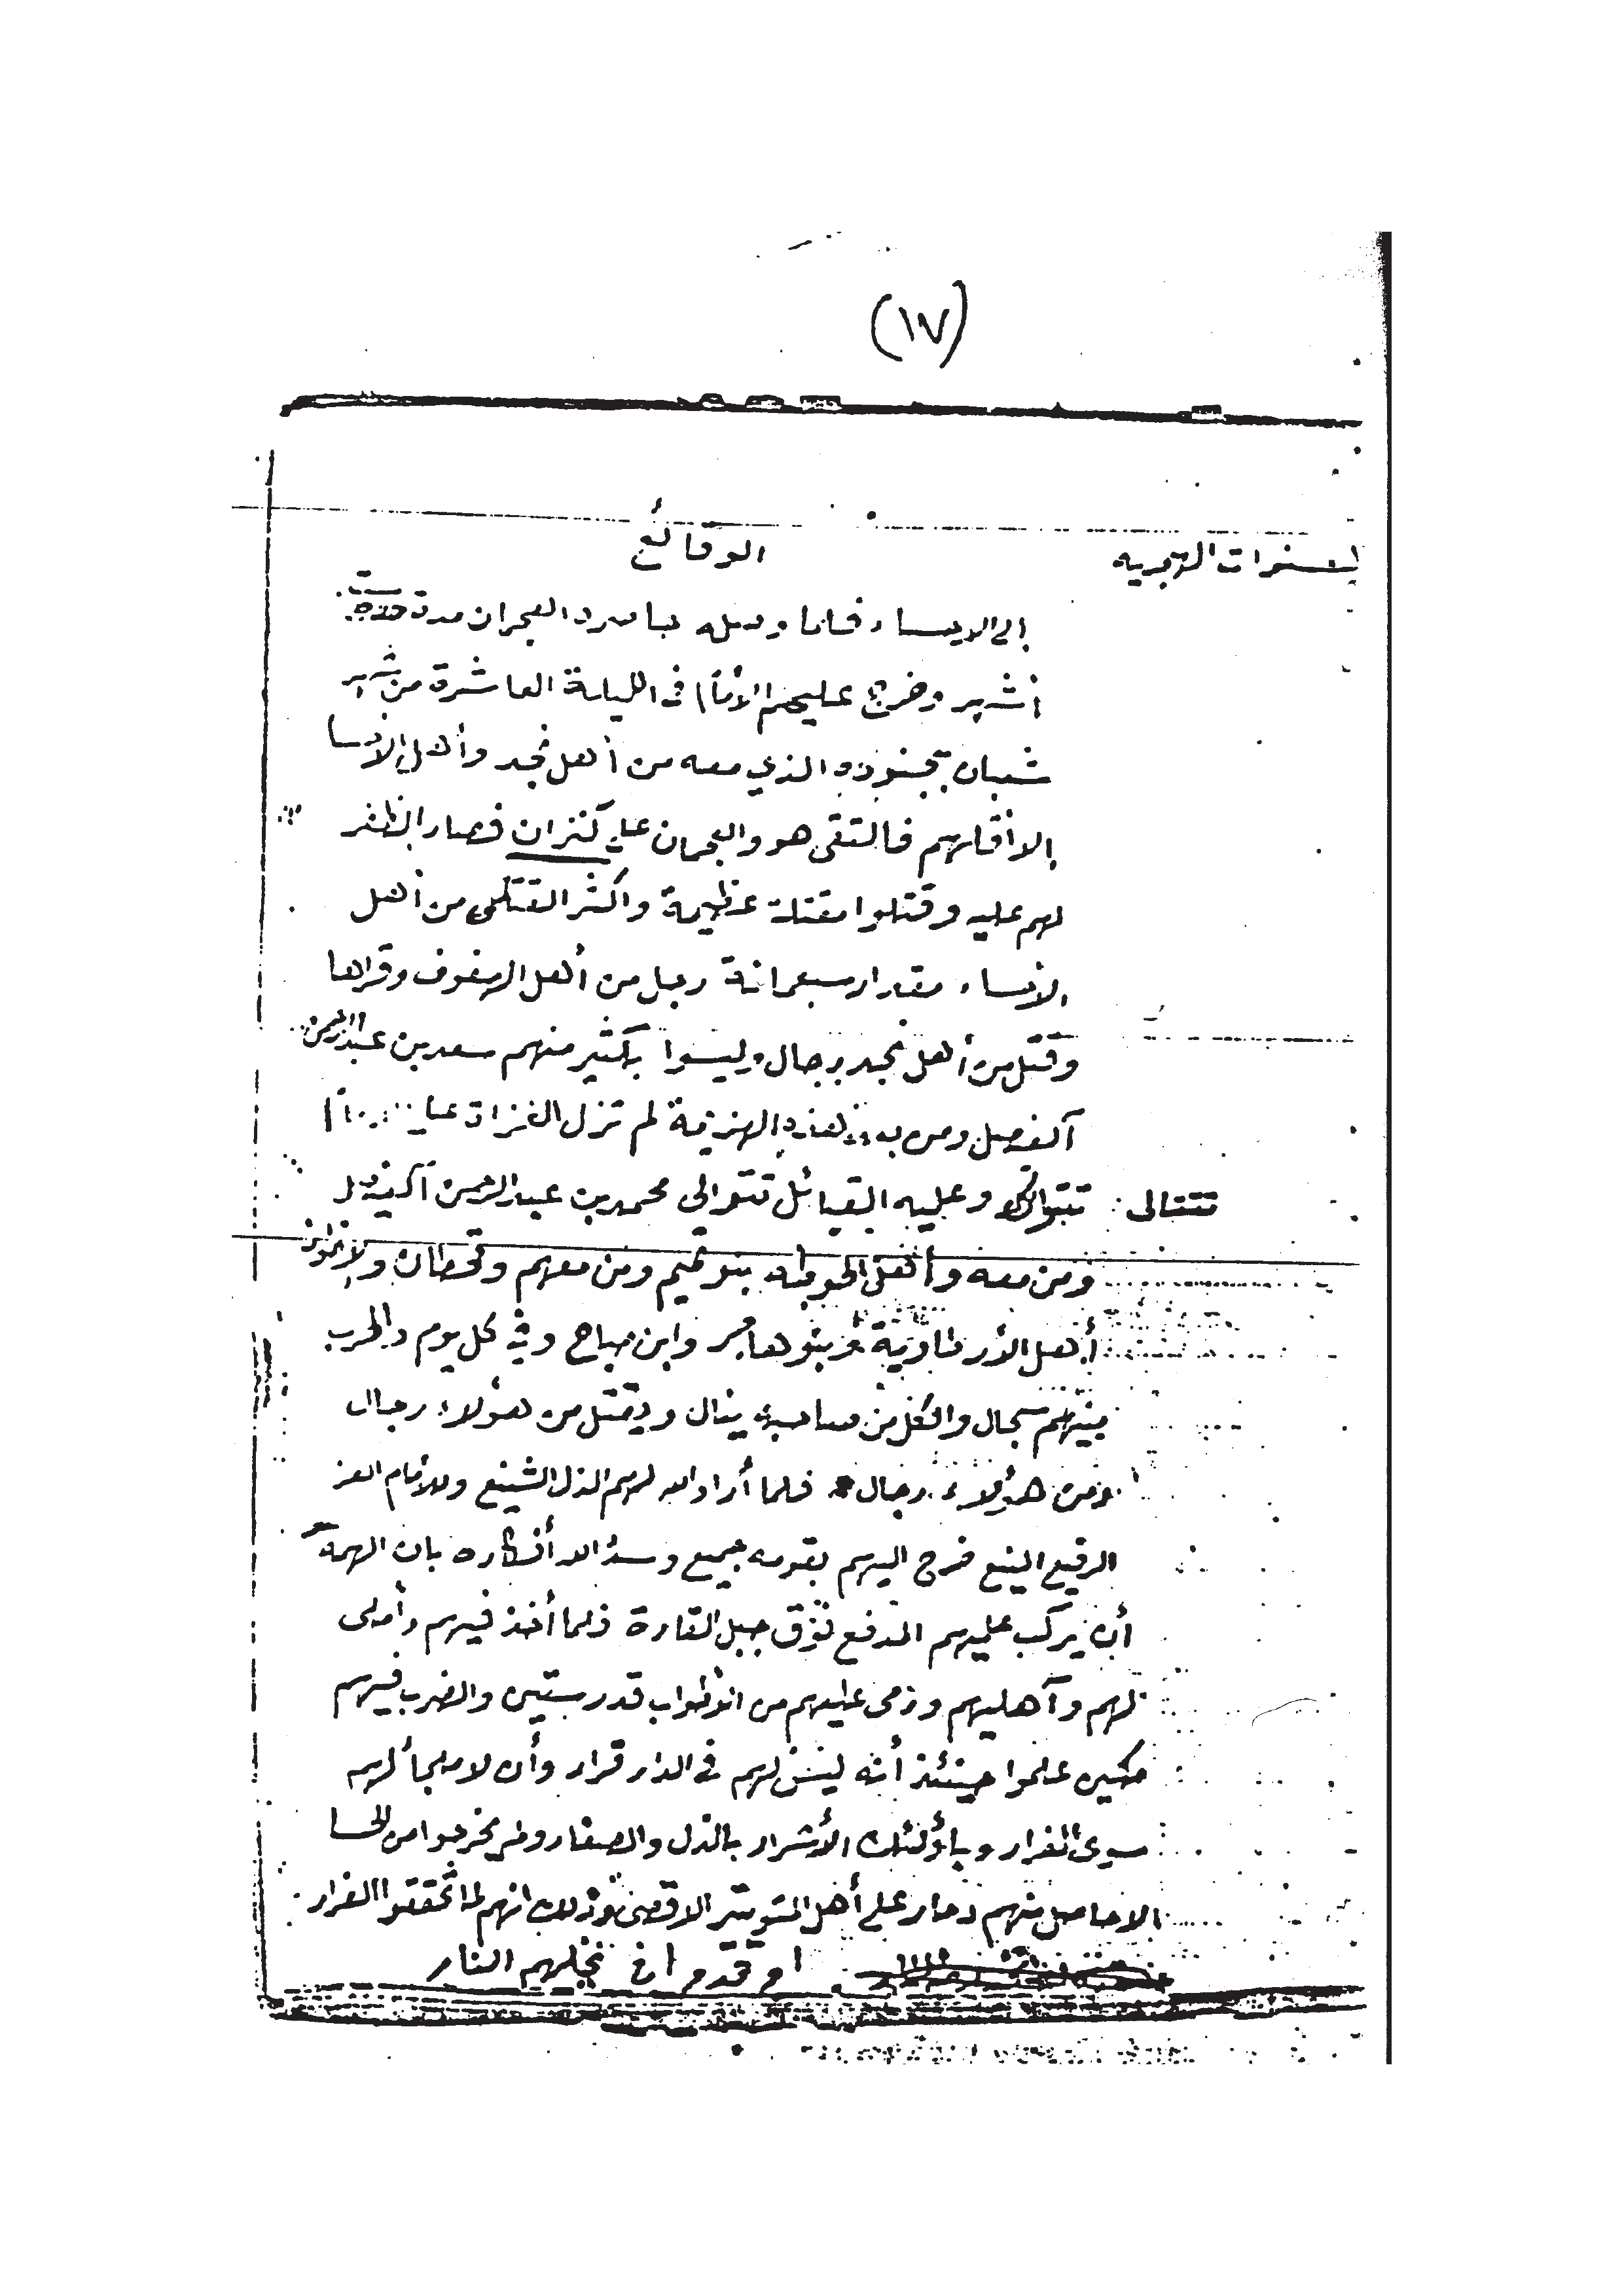 (١٧)
السنوات الهجرية الوقائع
إلى الاحساء فأما وصله حاصره العجمان مدة ستة
أشهر وخرج عليهم الأمام في الليلة العاشرة من شهر
شعبان بجنوده الذي معه من أهل نجد وأهل الاحسا
الا أقلهم فالتقى هو والعجمان على كنزان فصار الظفر
لهم عليه وقتلوا مقتلة عظيمة وأكثر القتلى من أهل
الأحساء مقدار سبعمائة رجل من أهل الهفوف وقراها
وقتل من أهل نجد رجال وليسوا بكثير منهم سعد بن عبدالرحمن
آل فيصل ومن بعد هذه الهزيمة لم تزل الغزات على
تتوالى وعليه القبائل تتوالى محمد بن عبدالرحمن آل فيصل
تتتالى
ومن معه وأهل الحوطه بنو تميم ومن معهم وقحطان والاخوان
أهل الأرطاوية وبنو هاجر وابن صباح وفي كل يوم والحرب
بينهم سجال والكل من صاحبه ينال ويقتل من هؤلاء رجال
ومن هؤلاء رجال فلما أراد الله لهم الذل الشنيع وللأمام العز
الرفيع المنيع خرج اليهم بقومه جميع وسدد الله أفكاره بان الهمه
أن يركب عليهم المدفع فوق جبل القارة فلما أخذ فيهم وأملى
لهم وآهليهم ورمى عليهم من الأطواب قدر ستين والضرب فيهم
مكين علموا حينئذ أنه ليس لهم في الدار قرار وأن لا ملجأ لهم
سوى الفرار وباؤ أولئك الأشرار بالذل والصغار ولم يخرجوا من الحسا
الا حاصل منهم دمار على أهل الشويتير الاقصى وذلك انهم لما تحققوا الفرار
نخيلهم النار